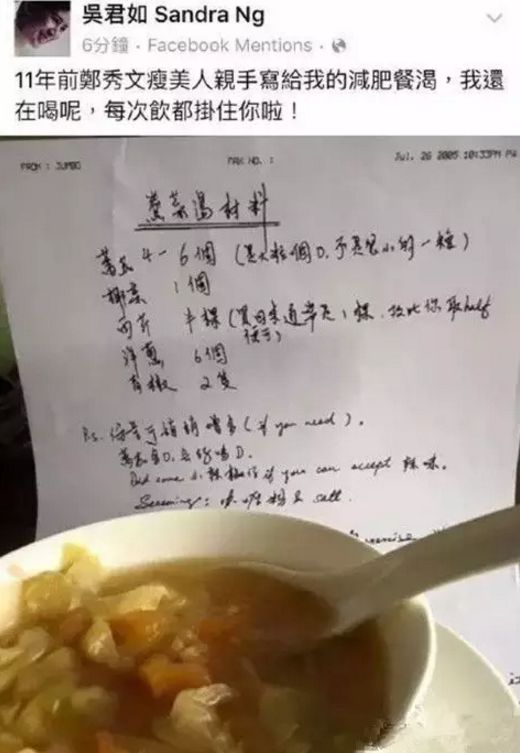 吳君如 Sandra Ng
6分鐘 · Facebook Mentions ·
11年前鄭秀文瘦美人親手寫給我的減肥餐渴，我還
在喝呢，每次飲都掛住你啦！
FROM : JUMBO FAX NO. : Jul. 26 2005 10:33PM
湯材料
4-6個 (買大粒個D, 不是細小的一種)
椰菜 1個
西芹 半棵 (買回來通常是1棵, 故此你取half
便可)
洋蔥 6個
青椒 2隻
Ps. 份量可稍稍增多 (if you need).
多D, 好喝D.
some 小辣椒仔 if you can accept 辣味.
粉 & salt.